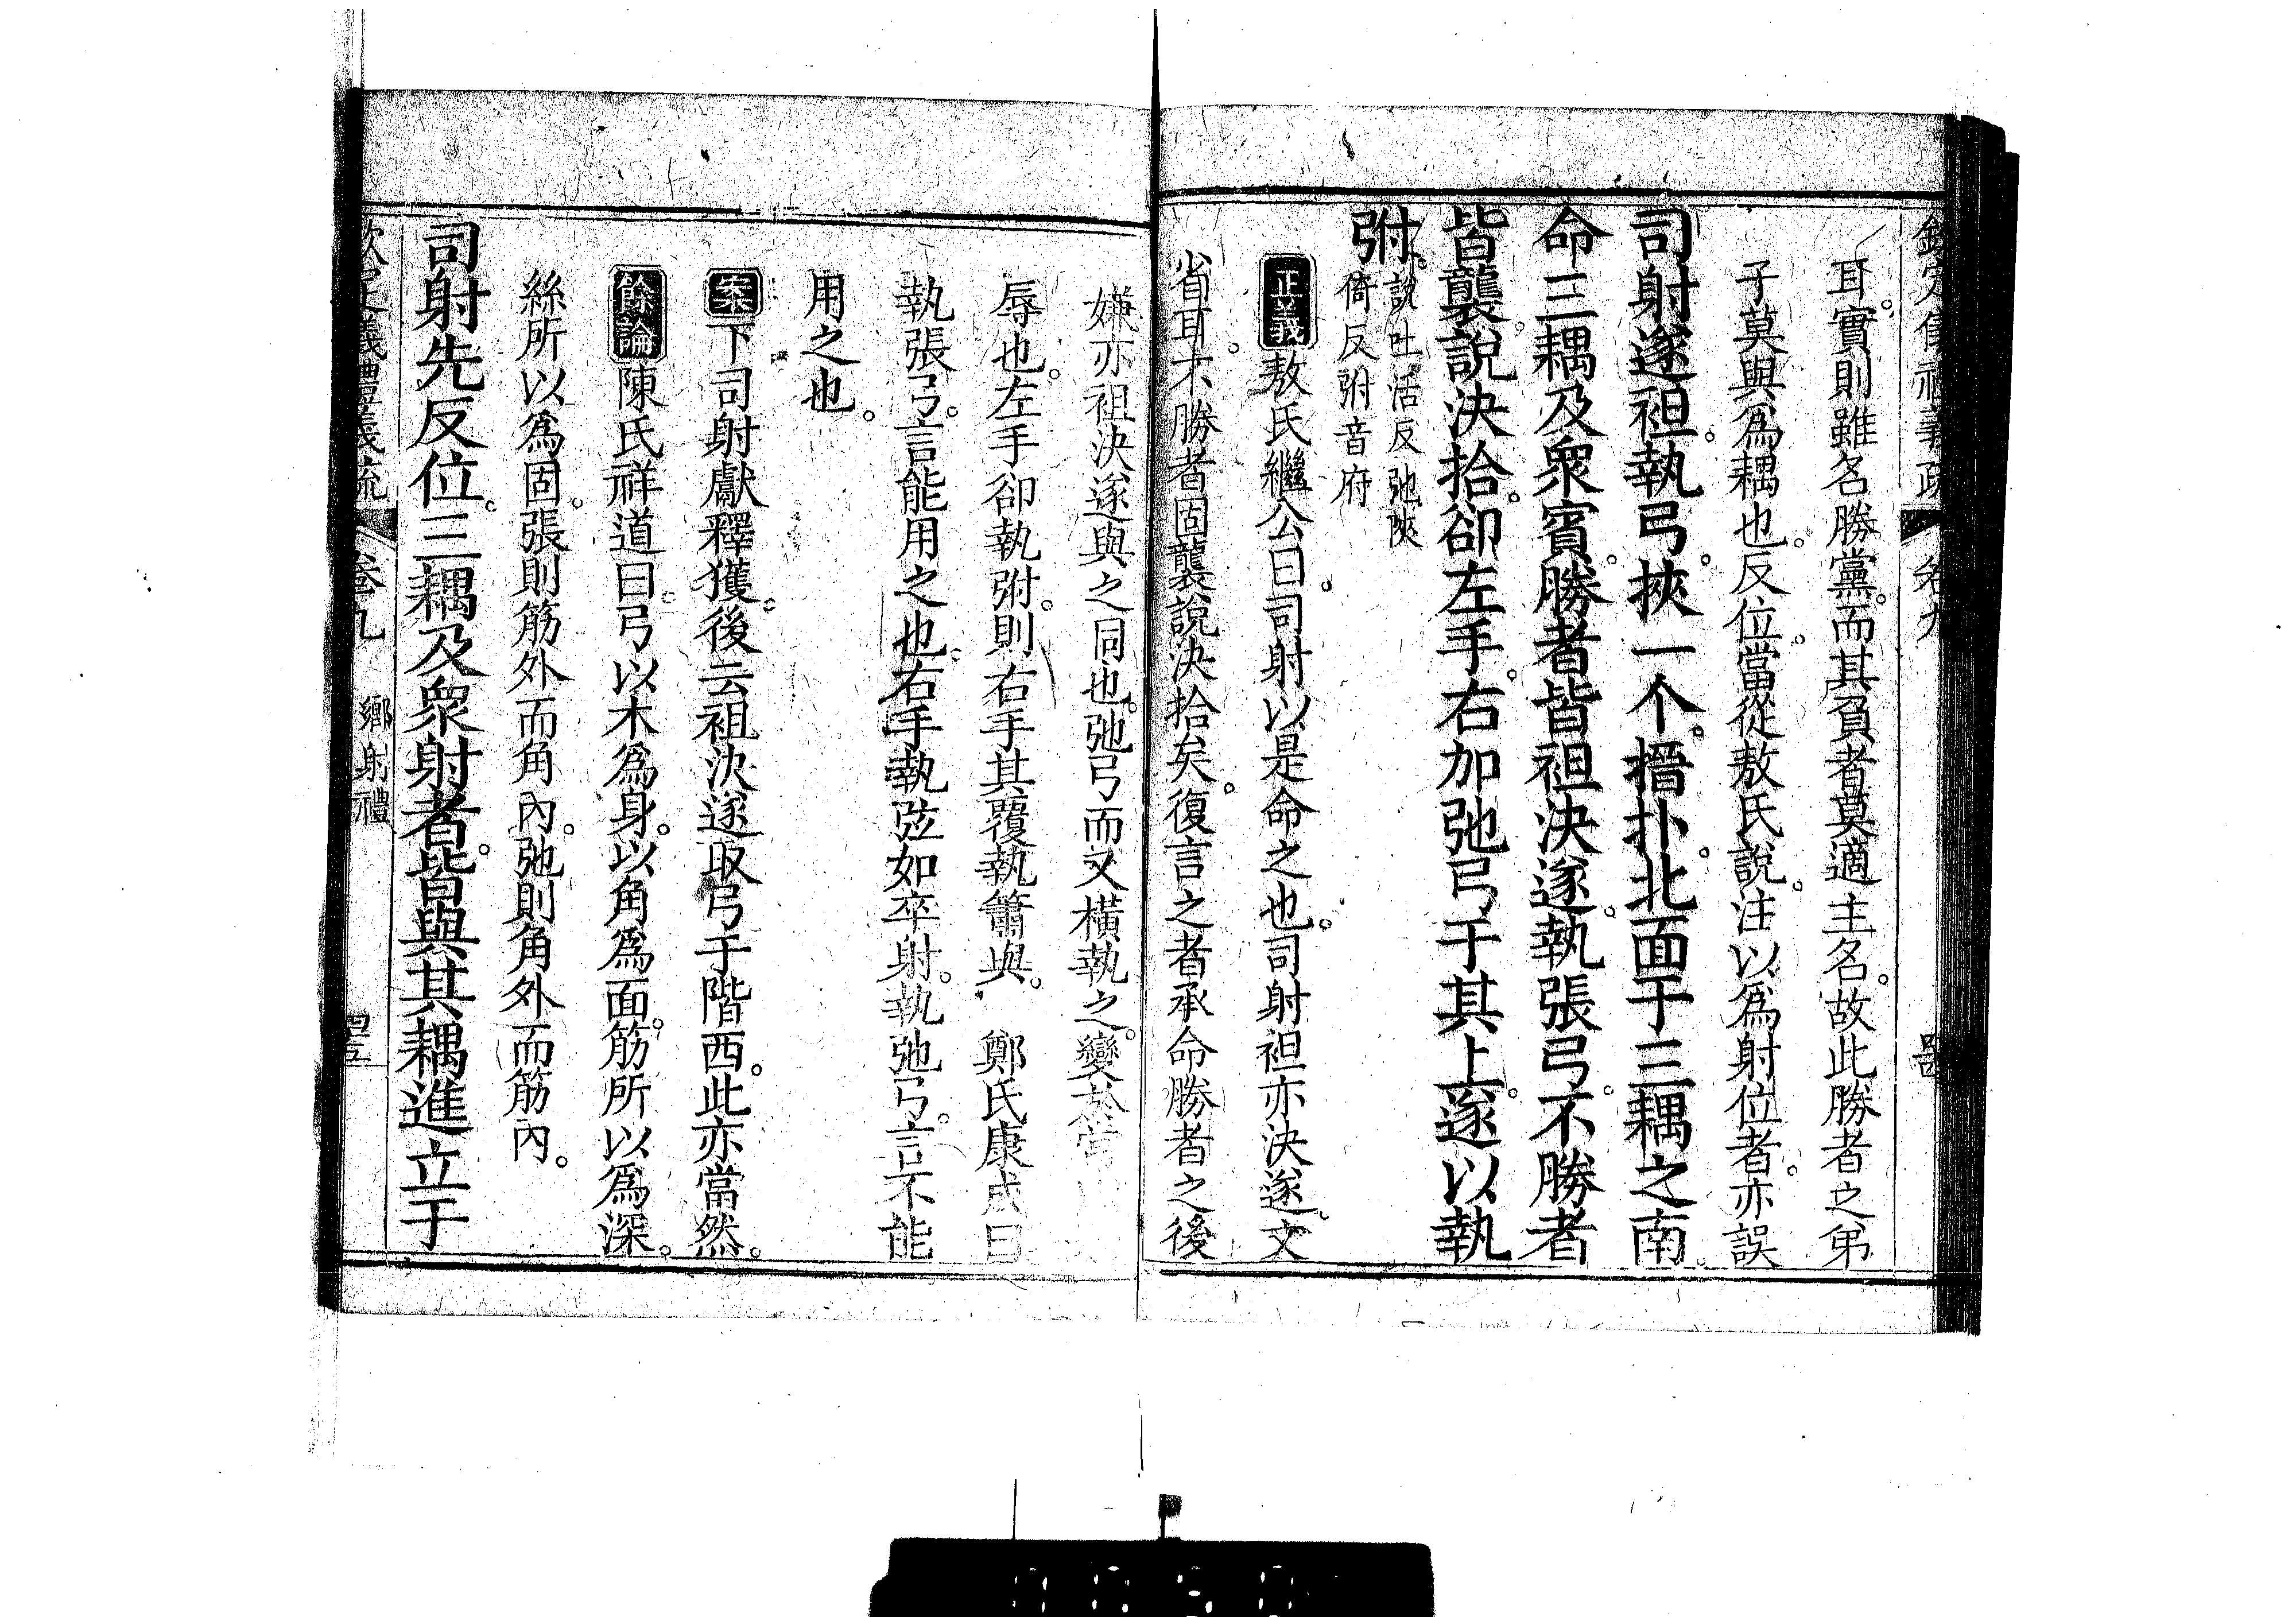 欽定儀禮義疏 卷九
耳。實則雖名勝黨。而其負者莫適主名。故此勝者之弟
子莫與爲耦也。反位。當從敖氏說。注以爲射位者。亦誤
司射遂袒。執弓。挾一个。搢扑。北面于三耦之南。
命三耦及眾賓。勝者皆袒決遂。執張弓。不勝者
皆襲。說決拾。卻左手。右加弛弓于其上。遂以執
弣。說吐活反弛陝
倚反弣音府
正義敖氏繼公曰。司射以是命之也。司射袒亦決遂。文
省耳。不勝者固襲說決拾矣。復言之者承命勝者之後
嫌亦袒決遂與之同也。弛弓而又橫執之。變於常
辱也。左手卻執弣。則右手其覆執簫與。 鄭氏康成曰
執張弓。言能用之也。右手執弦如卒射。執弛弓。言不能
用之也。
案下司射獻釋獲後云袒決遂取弓于階西。此亦當然。
餘論陳氏祥道曰。弓以木爲身。以角爲面。筋所以爲深。
絲所以爲固。張則筋外而角內。弛則角外而筋內。
司射先反位。三耦及眾射者。皆與其耦進立于
欽定儀禮義疏 卷九 鄉射禮